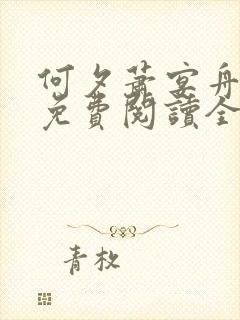 何夕蕭宴舟
免費閱讀全
青枚